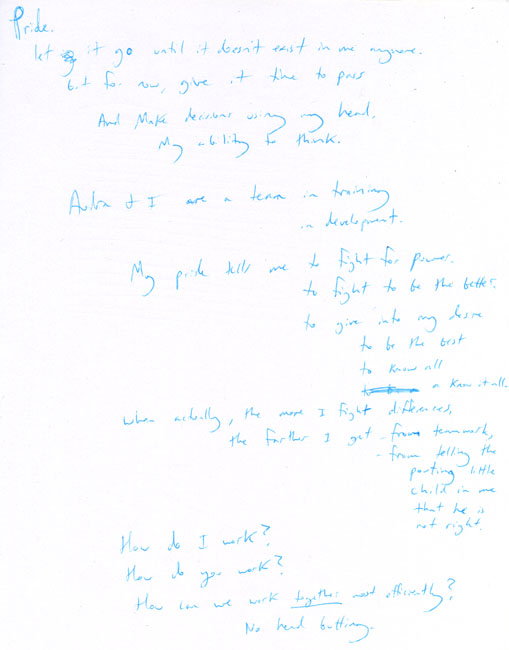 Pride.
let it go until it doesn't exist in me anymore.
but for now, give it time to pass
And Make decisions using my head,
My ability to think.
& I are a team in training
in development.
My pride tells me to fight for power.
to fight to be the better.
to give into my desire
to be the best
to know all
a know it all.
when actually, the more I fight differences,
the farther I get - from teamwork,
- from telling the
pouting little
child in me
that he is
not right.
How do I work?
How do you work?
How can we work together most efficiently?
No head butting.